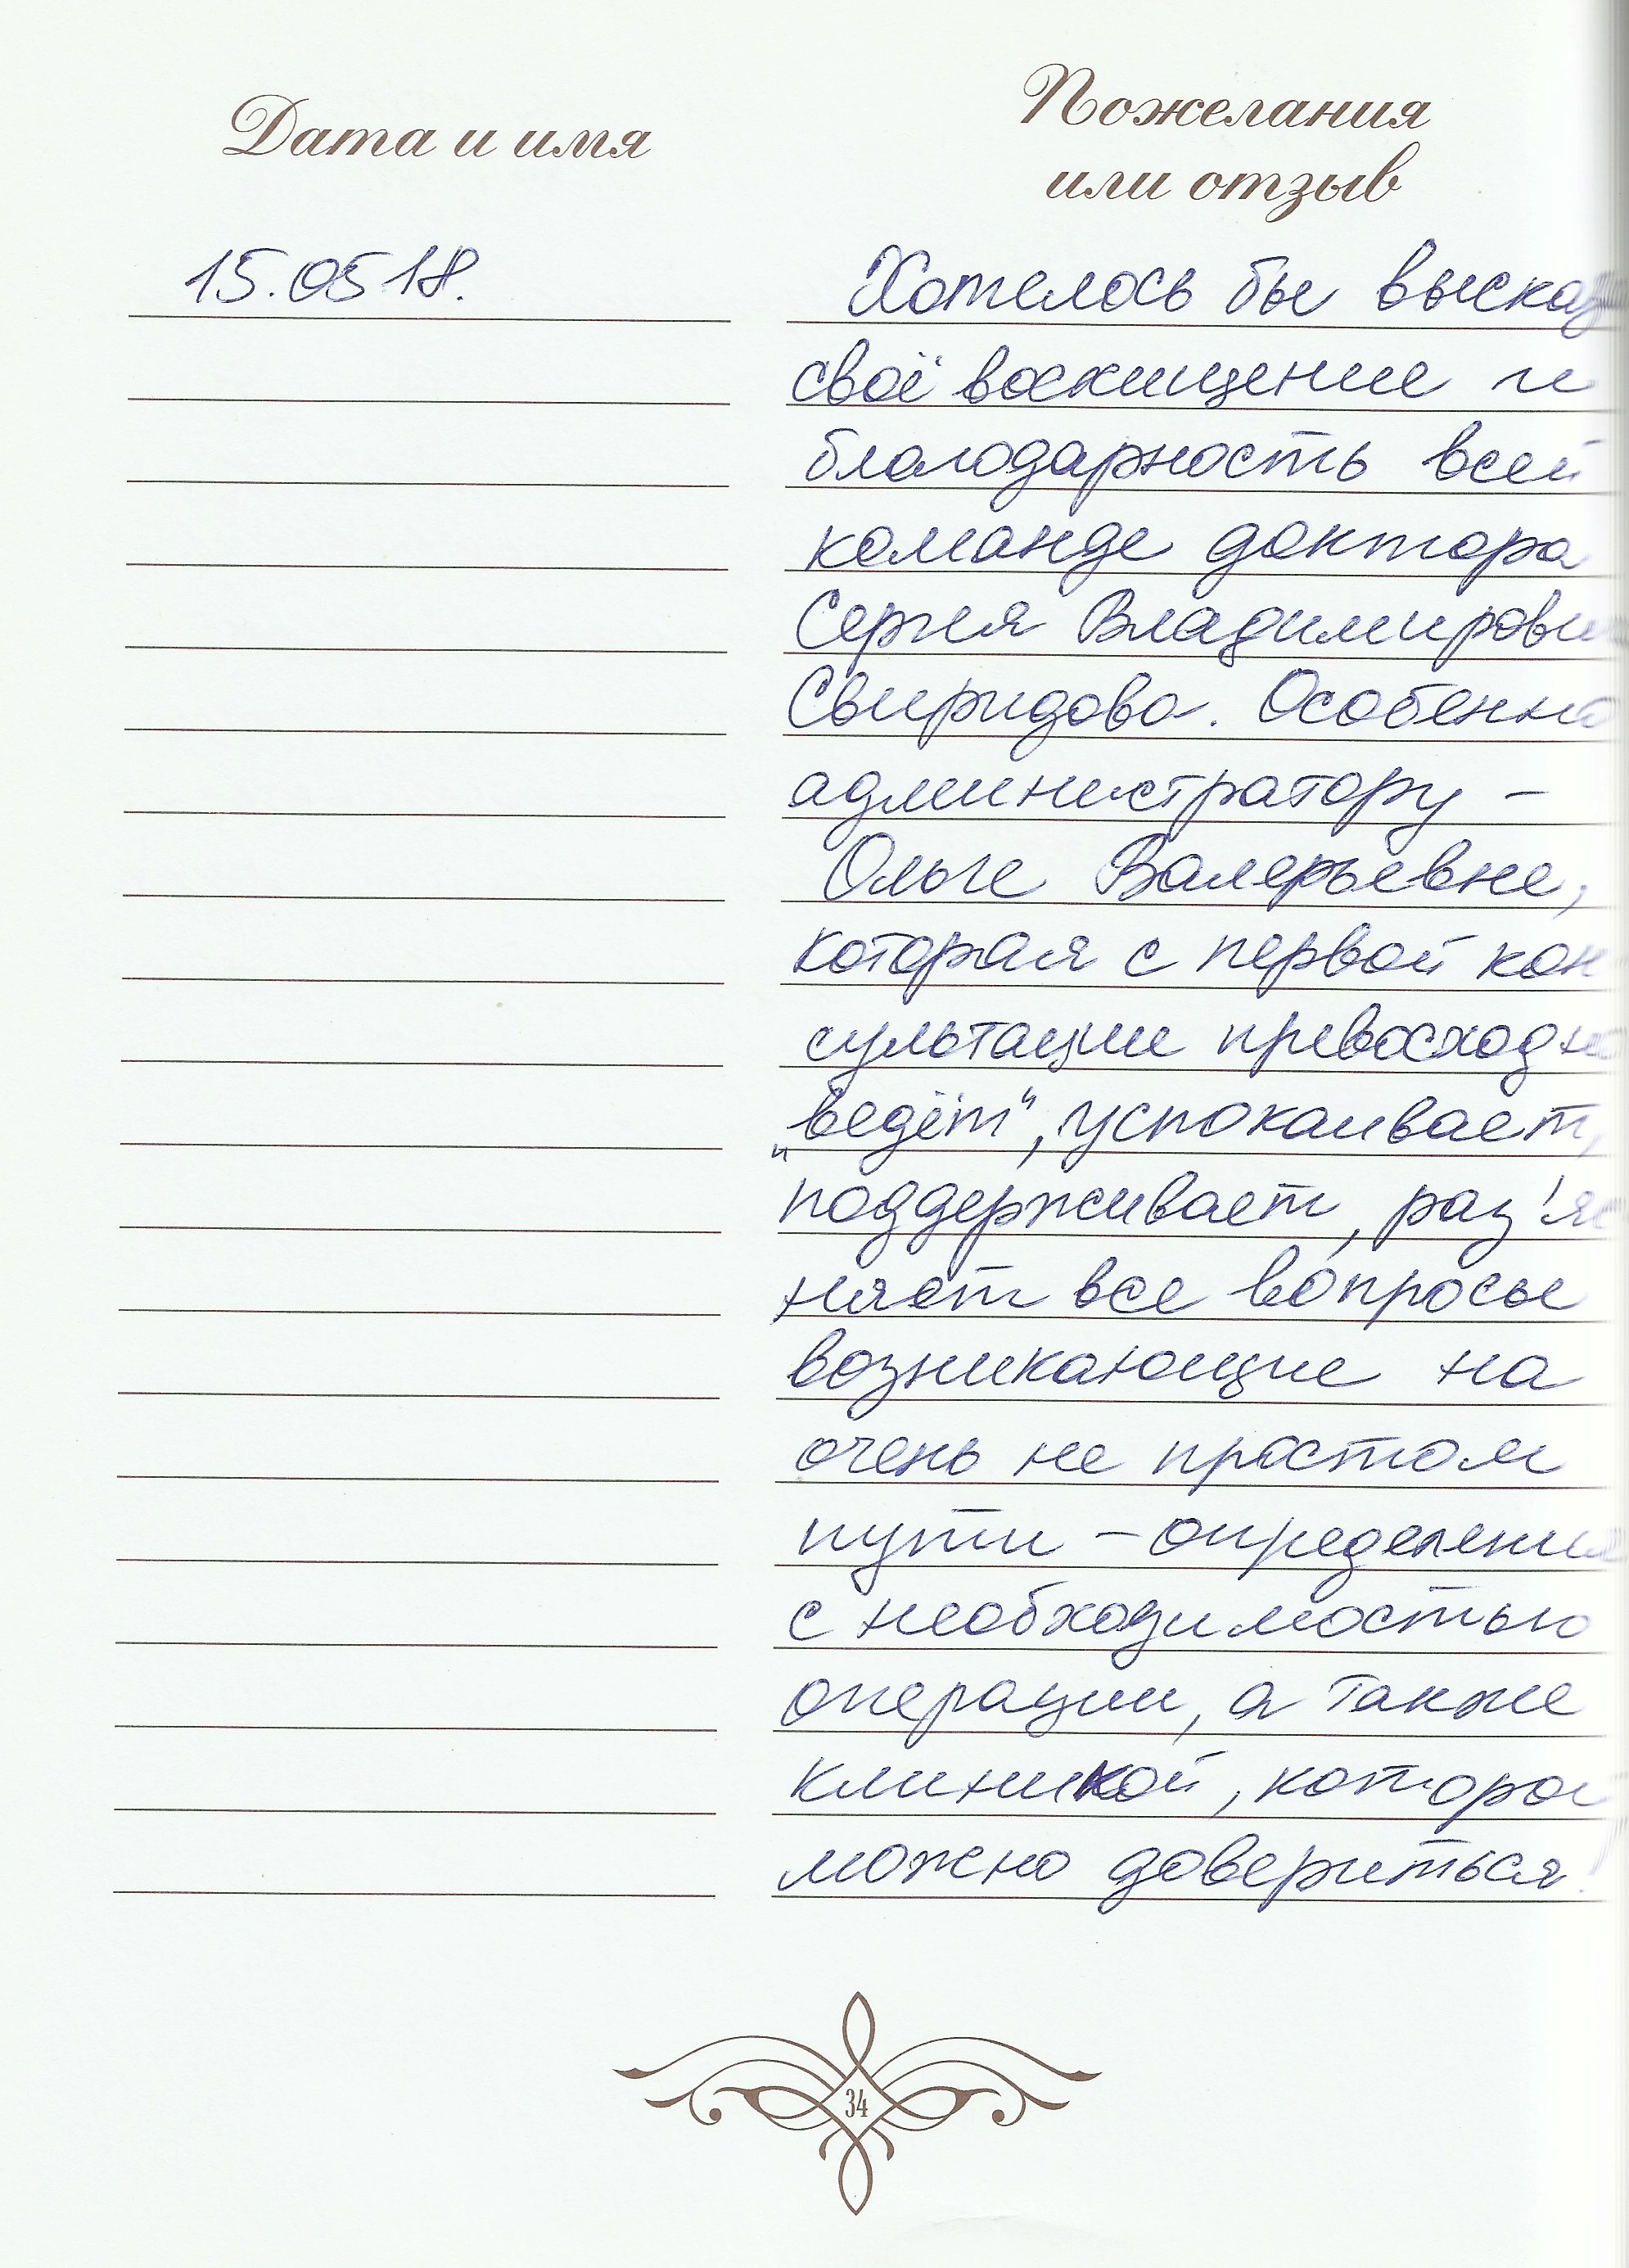 Дата и имя
Пожелания
или отзыв
15.05.18.
Хотелось бы выска
своё восхищение и
благодарность всей
команде доктора
Сергея Владимирови
Свиридова. Особенно
администратору -
Ольге Валерьевне,
которая с первой кон
сультации превосходно
„ведёт“, успокаивает,
поддерживает, раз'яс
няет все вопросы
возникающие на
очень не простом
пути - определение
с необходимостью
операции, а также
клиникой, которой
можно довериться!
34